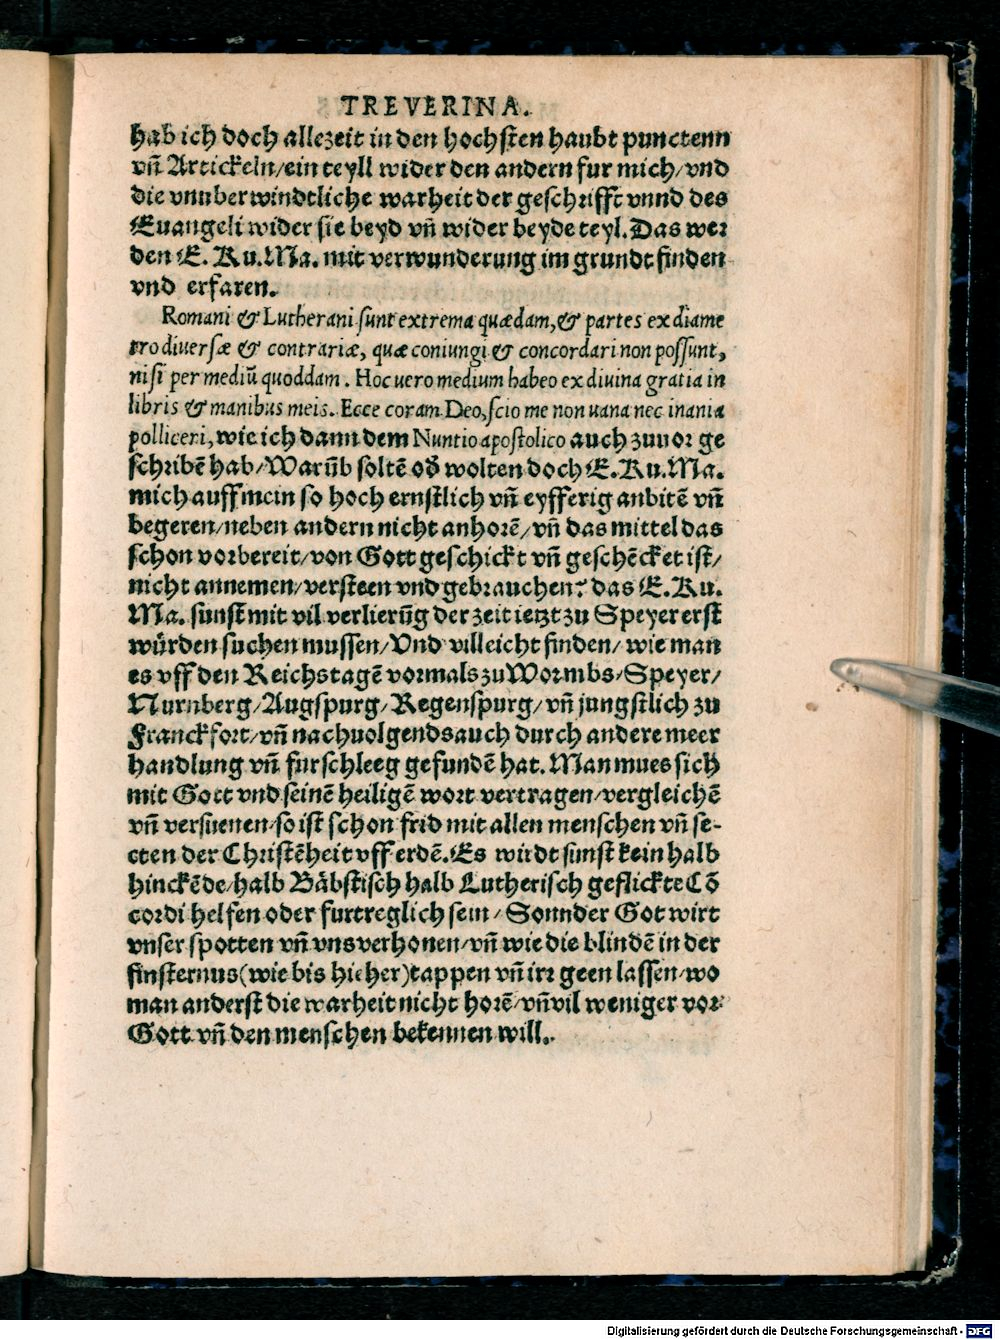 TREVERINA.
hab ich doch allezeit in den hochsten haubt punctenn
vñ Artickeln/ein teyll wider den andern fur mich/vnd
die vnuberwindtliche warheit der geschrifft vnnd des
Euangeli wider sie beyd vñ wider beyde teyl. Das wer
den E. Ku. Ma. mit verwunderung im grundt finden
vnd erfaren.
Romani & Lutherani sunt extrema quædam, & partes ex diame
tro diuersæ & contrariæ, quæ coniungi & concordari non possunt,
nisi per mediū quoddam. Hoc uero medium habeo ex diuina gratia in
libris & manibus meis. Ecce coram Deo, scio me non uana nec inania
polliceri, wie ich dann dem Nuntio apostolico auch zuuor ge
schribē hab/Warūb soltē od̄ wolten doch E. Ku. Ma.
mich auff mein so hoch ernstlich vñ eyfferig anbitē vñ
begeren/neben andern nicht anhorē/vñ das mittel das
schon vorbereit/von Gott geschickt vñ geschēcket ist/
nicht annemen/versteen vnd gebrauchen? das E. Ku.
Ma. sunst mit vil verlierūg der zeit ietzt zu Speyer erst
würden suchen mussen/Vnd villeicht finden/wie man
es vff den Reichstagē vormals zu Wormbs/Speyer/
Nurnberg/Augspurg/Regenspurg/vñ jungstlich zu
Franckfort/vñ nachuolgends auch durch andere meer
handlung vñ furschleeg gefundē hat. Man mues sich
mit Gott vnd seinē heiligē wort vertragen/vergleichē
vñ versuenen/so ist schon frid mit allen menschen vñ se-
cten der Christēheit vff erdē. Es wirdt sunst kein halb
hinckēde/halb Bäbstisch halb Lutherisch geflickte Cō
cordi helfen oder furtreglich sein/Sonnder Got wirt
vnser spotten vñ vns verhonen/vñ wie die blindē in der
finsternus(wie bis hieher)tappen vñ irr geen lassen/wo
man anderst die warheit nicht horē/vñ vil weniger vor
Gott vñ den menschen bekennen will.
Digitalisierung gefördert durch die Deutsche Forschungsgemeinschaft - DFG